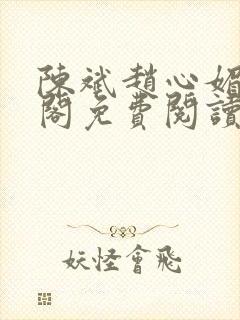 陳斌趙心媚
閣免費閱讀
妖怪會飛